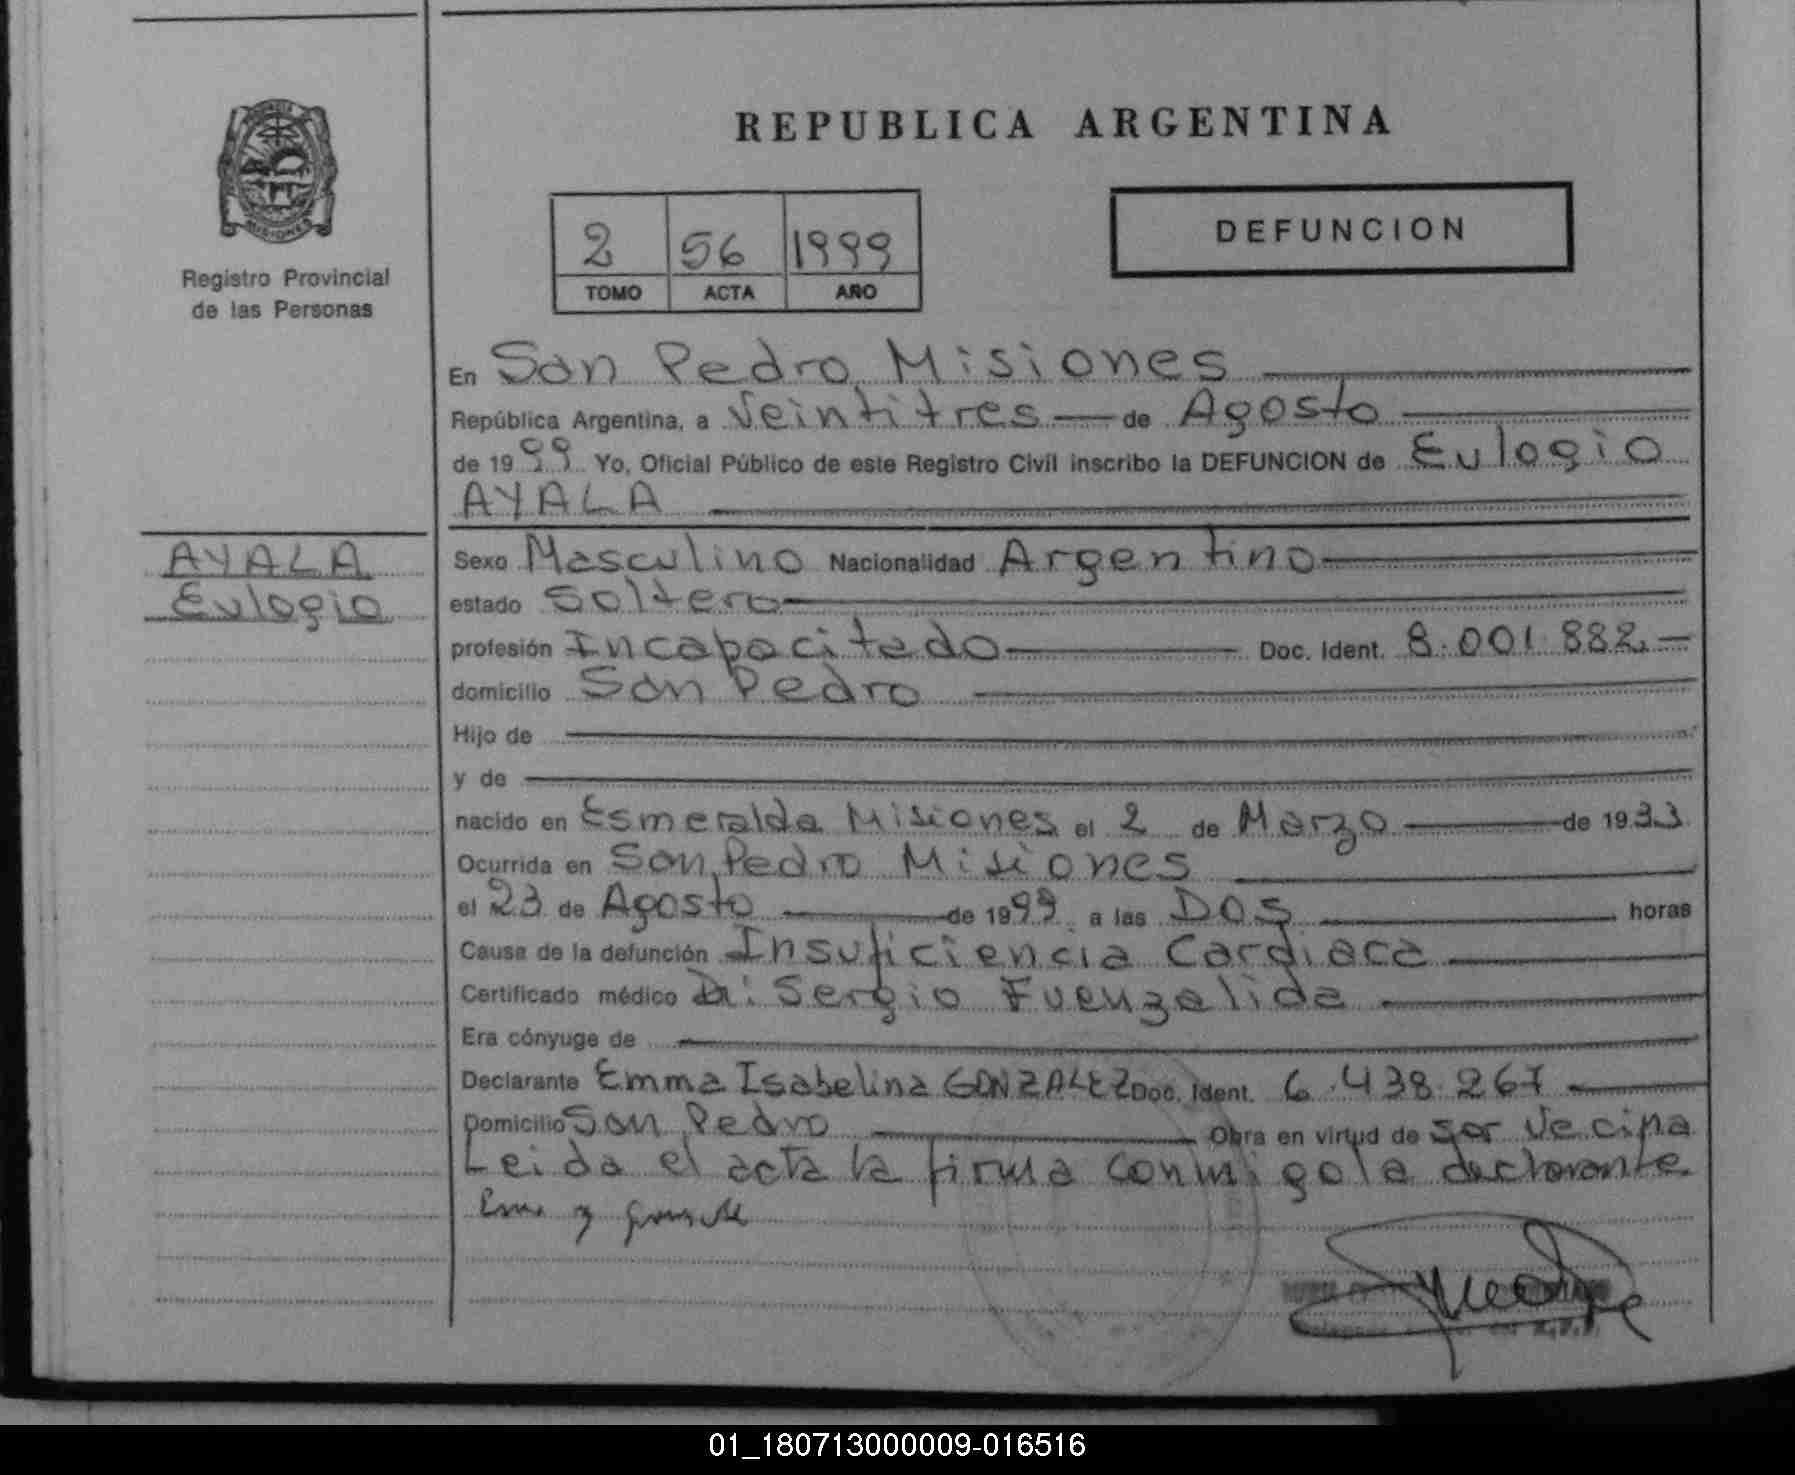 REPUBLICA ARGENTINA
PROVINCIA
MISIONES
Registro Provincial
de las Personas
2 56 1999
TOMO ACTA AÑO
DEFUNCION
En San Pedro, Misiones
República Argentina, a Veintitres de Agosto
de 1999 Yo, Oficial Público de este Registro Civil inscribo la DEFUNCION de Eulogio
AYALA
AYALA
Eulogio
Sexo Masculino Nacionalidad Argentino
estado Soltero
profesión Incapacitado Doc. Ident. 8.001.882.
domicilio San Pedro
Hijo de
y de
nacido en Esmeralda Misiones el 2 de Marzo de 1933
Ocurrida en San Pedro Misiones
el 23 de Agosto de 1999 a las DOS horas
Causa de la defunción Insuficiencia Cardiaca
Certificado médico Dr: Sergio Fuenzalida
Era cónyuge de
Declarante Emma Isabelina GONZALEZ Doc. Ident. 6.438.267
Domicilio San Pedro Obra en virtud de ser Vecina
Leida el acta la firma conmigo la declarante
01_180713000009-016516